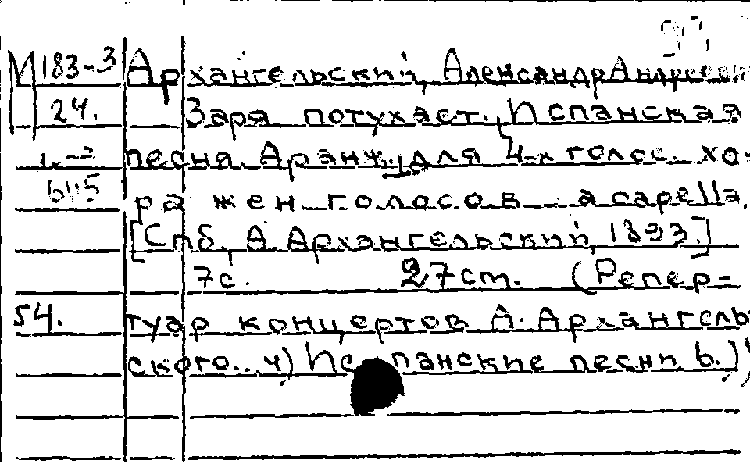 М 183-3 Архангельский, Александр Андреевич
24. Заря потухает. Испанская
песня. Аранж. для 4-х голос. хо-
ра жен. голосов a capella.
[Спб, А. Архангельский, 1893.]
7с. 27ст. (Репер-
54. туар концертов А. Архангель
ского.. ч) Испанские песни 6.)